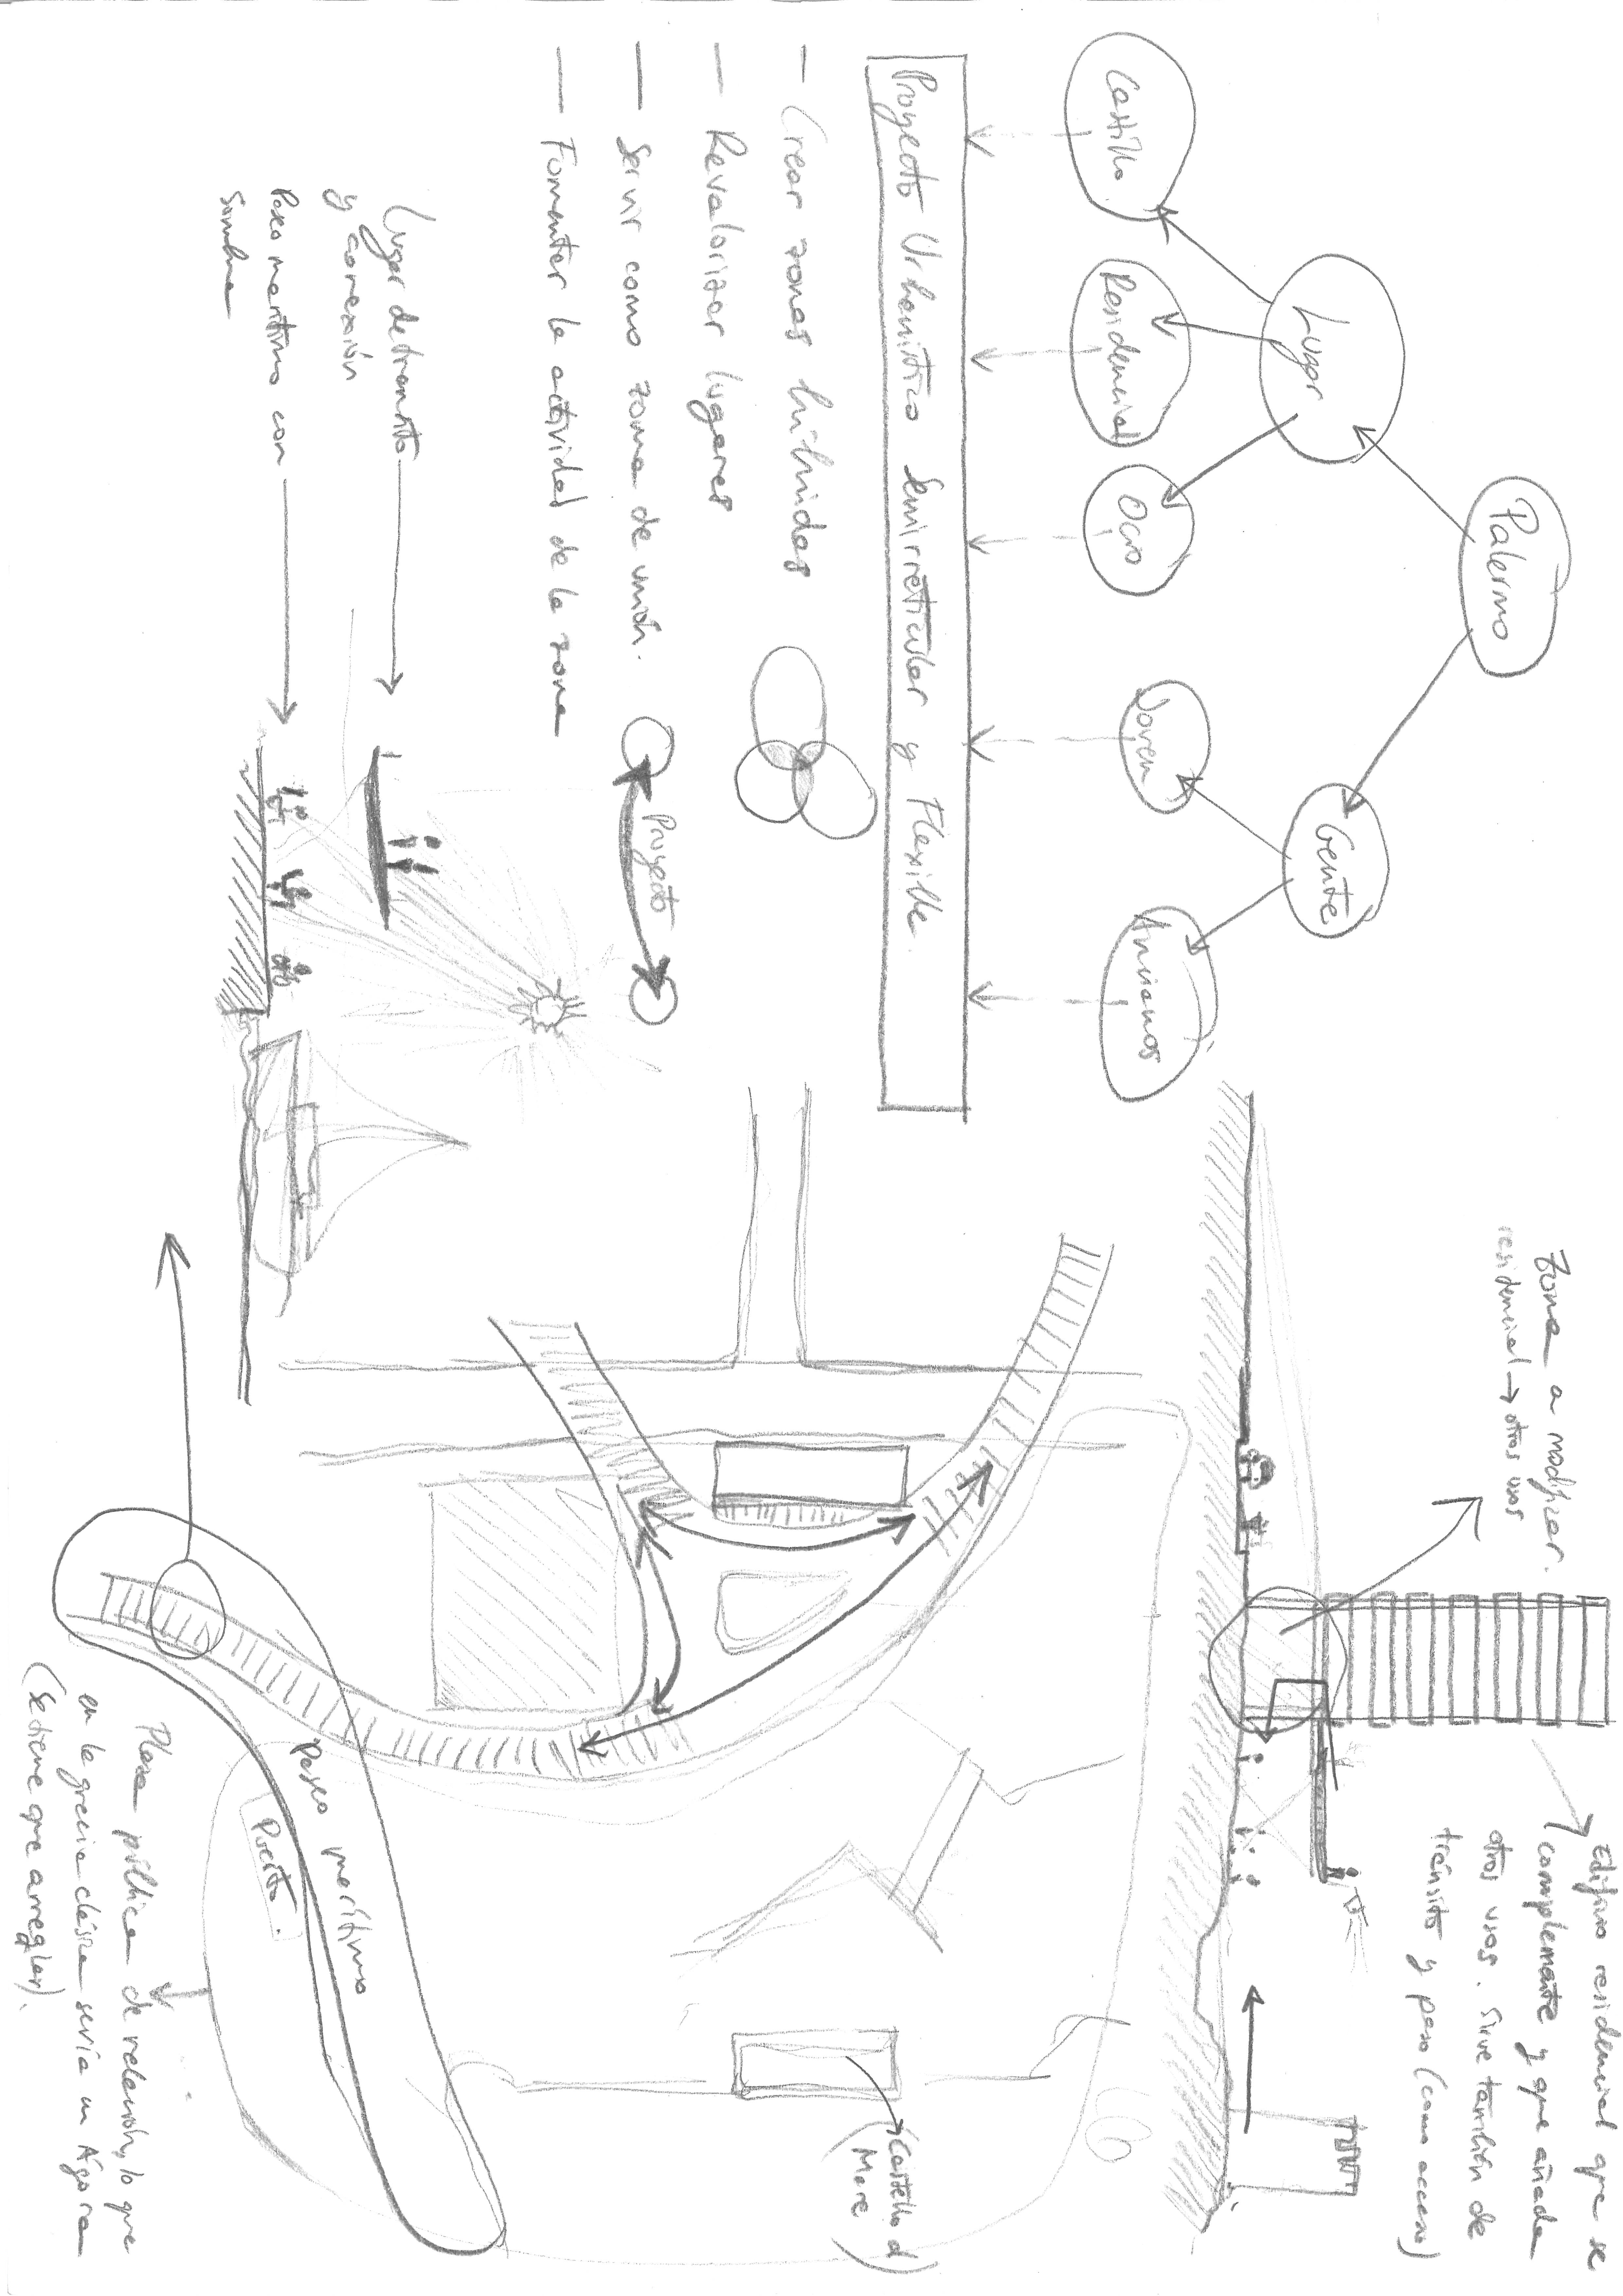 Palermo
Lugar
Gente
Castillo
Residencial
Ocio
Joven
Ancianos
Proyecto Urbanístico Semirreticular y Flexible.
— Crear zonas híbridas
— Revalorizar lugares
— Servir como zona de unión.
Proyecto
— Fomentar la actividad de la zona
Lugar de transito
y conexión
Paseo marítimo con
sombra
Zona a modificar.
residencial → otros usos
Edificio residencial que se
complemente y que añada
otros usos. Sirve también de
tránsito y paso (como acceso)
(Castello a
Mare)
Paseo marítimo
Puerto.
Plaza pública de relación, lo que
en la grecia clásica sería un Ágora
(Se tiene que arreglar).